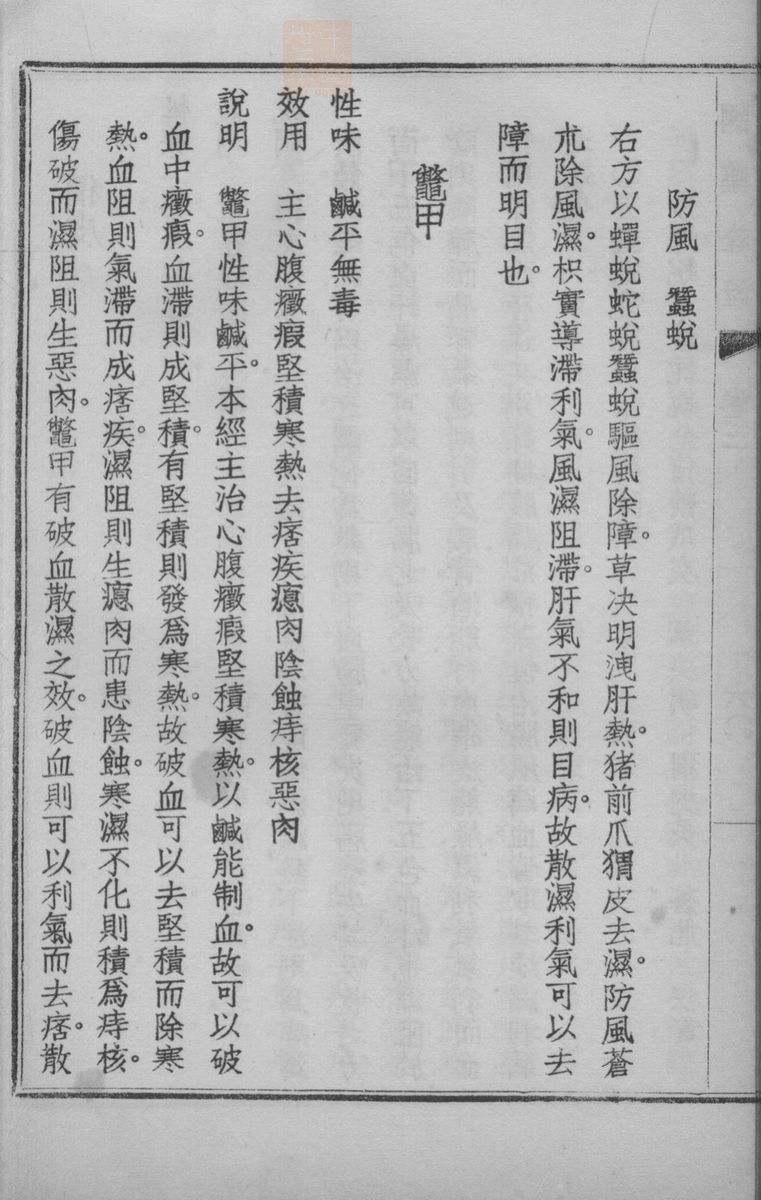 防風　蠶蛻
右方以蟬蛻蛇蛻蠶蛻驅風除障。草決明洩肝熱。猪前爪猬皮去濕。防風蒼
朮除風濕。枳實導滯利氣。風濕阻滯。肝氣不和則目病。故散濕利氣可以去
障而明目也。
鼈甲
性味　鹹平無毒
效用　主心腹癥瘕堅積寒熱去痞疾瘜肉陰蝕痔核惡肉
說明　鼈甲性味鹹平。本經主治心腹癥瘕堅積寒熱。以鹹能制血。故可以破
血中癥瘕。血滯則成堅積。有堅積則發爲寒熱。故破血可以去堅積而除寒
熱。血阻則氣滯而成痞疾。濕阻則生瘜肉而患陰蝕。寒濕不化則積爲痔核。
傷破而濕阻則生惡肉。鼈甲有破血散濕之效。破血則可以利氣而去痞。散